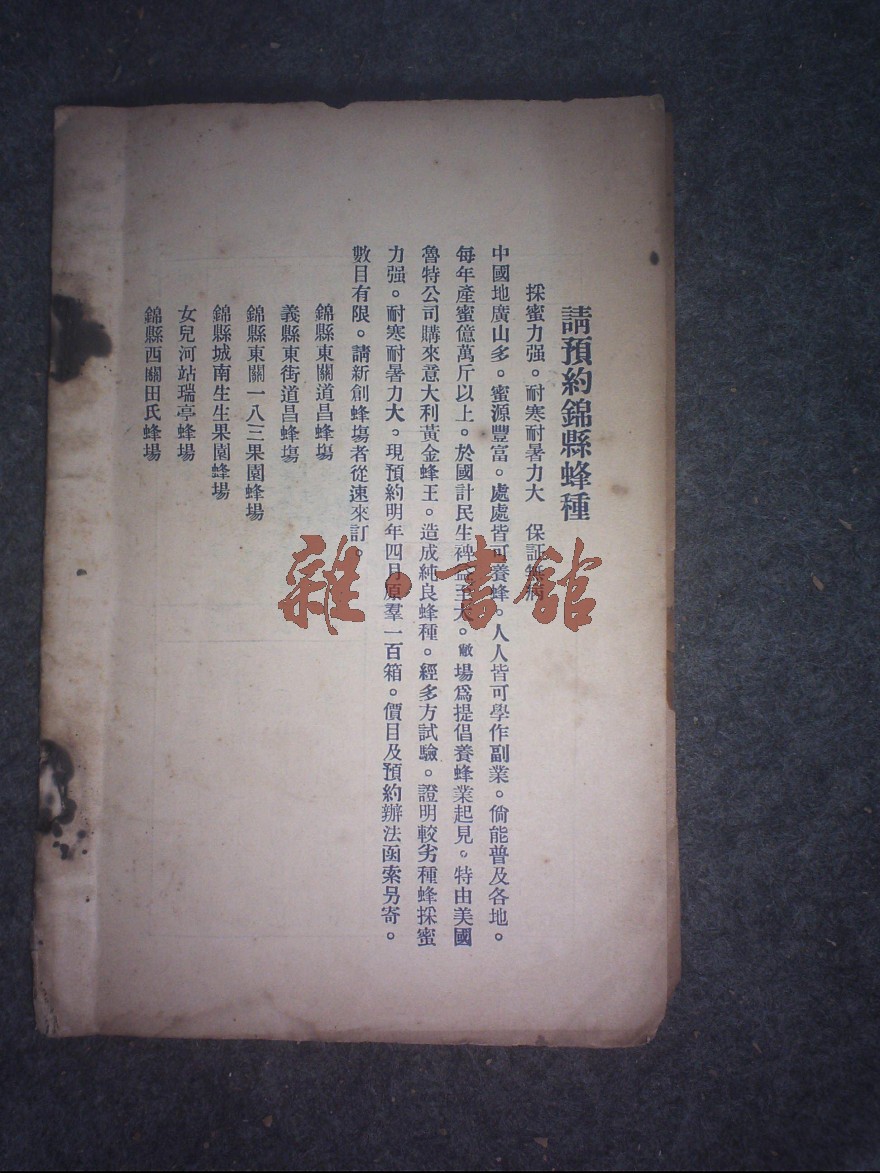 請預約錦縣蜂種
採蜜力强。耐寒耐暑力大　保証無病
中國地廣山多。蜜源豐富。處處皆可養蜂。人人皆可學作副業。倘能普及各地。
每年產蜜億萬斤以上。於國計民生裨益至大。敝場爲提倡養蜂業起見。特由美國
魯特公司購來意大利黃金蜂王。造成純良蜂種。經多方試驗。證明較劣種蜂採蜜
力强。耐寒耐暑力大。現預約明年四月原羣一百箱。價目及預約辦法函索另寄。
數目有限。請新創蜂塲者從速來訂。
錦縣東關道昌蜂塲
義縣東街道昌蜂塲
錦縣東關一八三果園蜂場
錦縣城南生生果園蜂場
女兒河站瑞亭蜂場
錦縣西關田氏蜂場
雜·書館